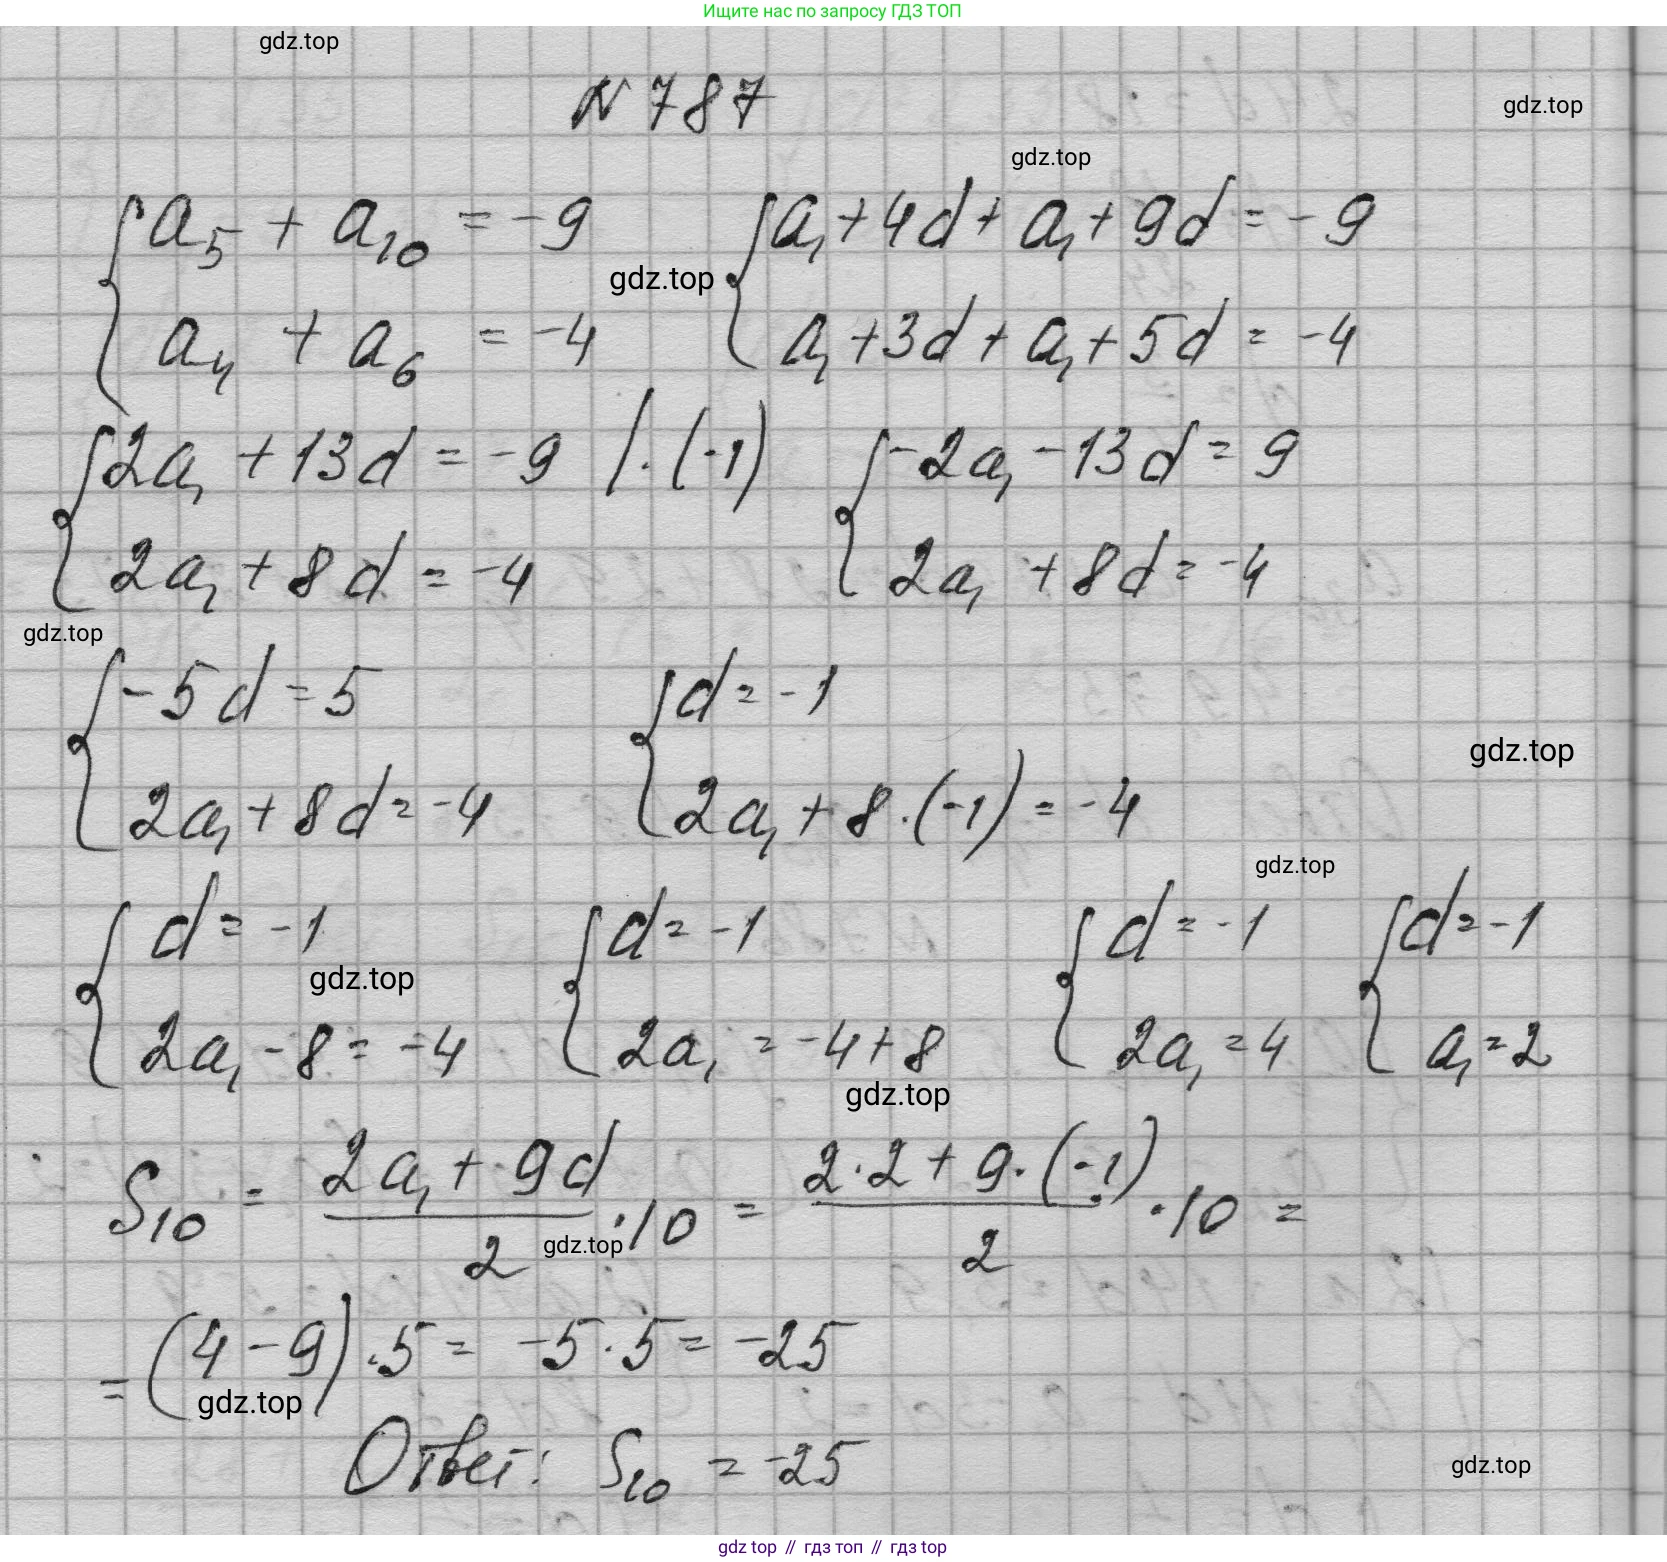 Ищите нас по запросу ГДЗ ТОП
gdz.top
N 787
gdz.top
gdz.top
{ a₅ + a₁₀ = -9 { a₁ + 4d + a₁ + 9d = -9
gdz.top
a₄ + a₆ = -4 a₁ + 3d + a₁ + 5d = -4
{ 2a₁ + 13d = -9 / · (-1) { -2a₁ - 13d = 9
2a₁ + 8d = -4 2a₁ + 8d = -4
gdz.top
{ -5d = 5 { d = -1
gdz.top
2a₁ + 8d = -4 2a₁ + 8 · (-1) = -4
gdz.top
{ d = -1 { d = -1 { d = -1 { d = -1
gdz.top
2a₁ - 8 = -4 2a₁ = -4 + 8 2a₁ = 4 a₁ = 2
gdz.top
S₁₀ = (2a₁ + 9d)/2 · 10 = (2 · 2 + 9 · (-1))/2 · 10 =
gdz.top
= (4 - 9) · 5 = -5 · 5 = -25
gdz.top
Ответ: S₁₀ = -25
gdz.top
gdz top // гдз топ // гдз top